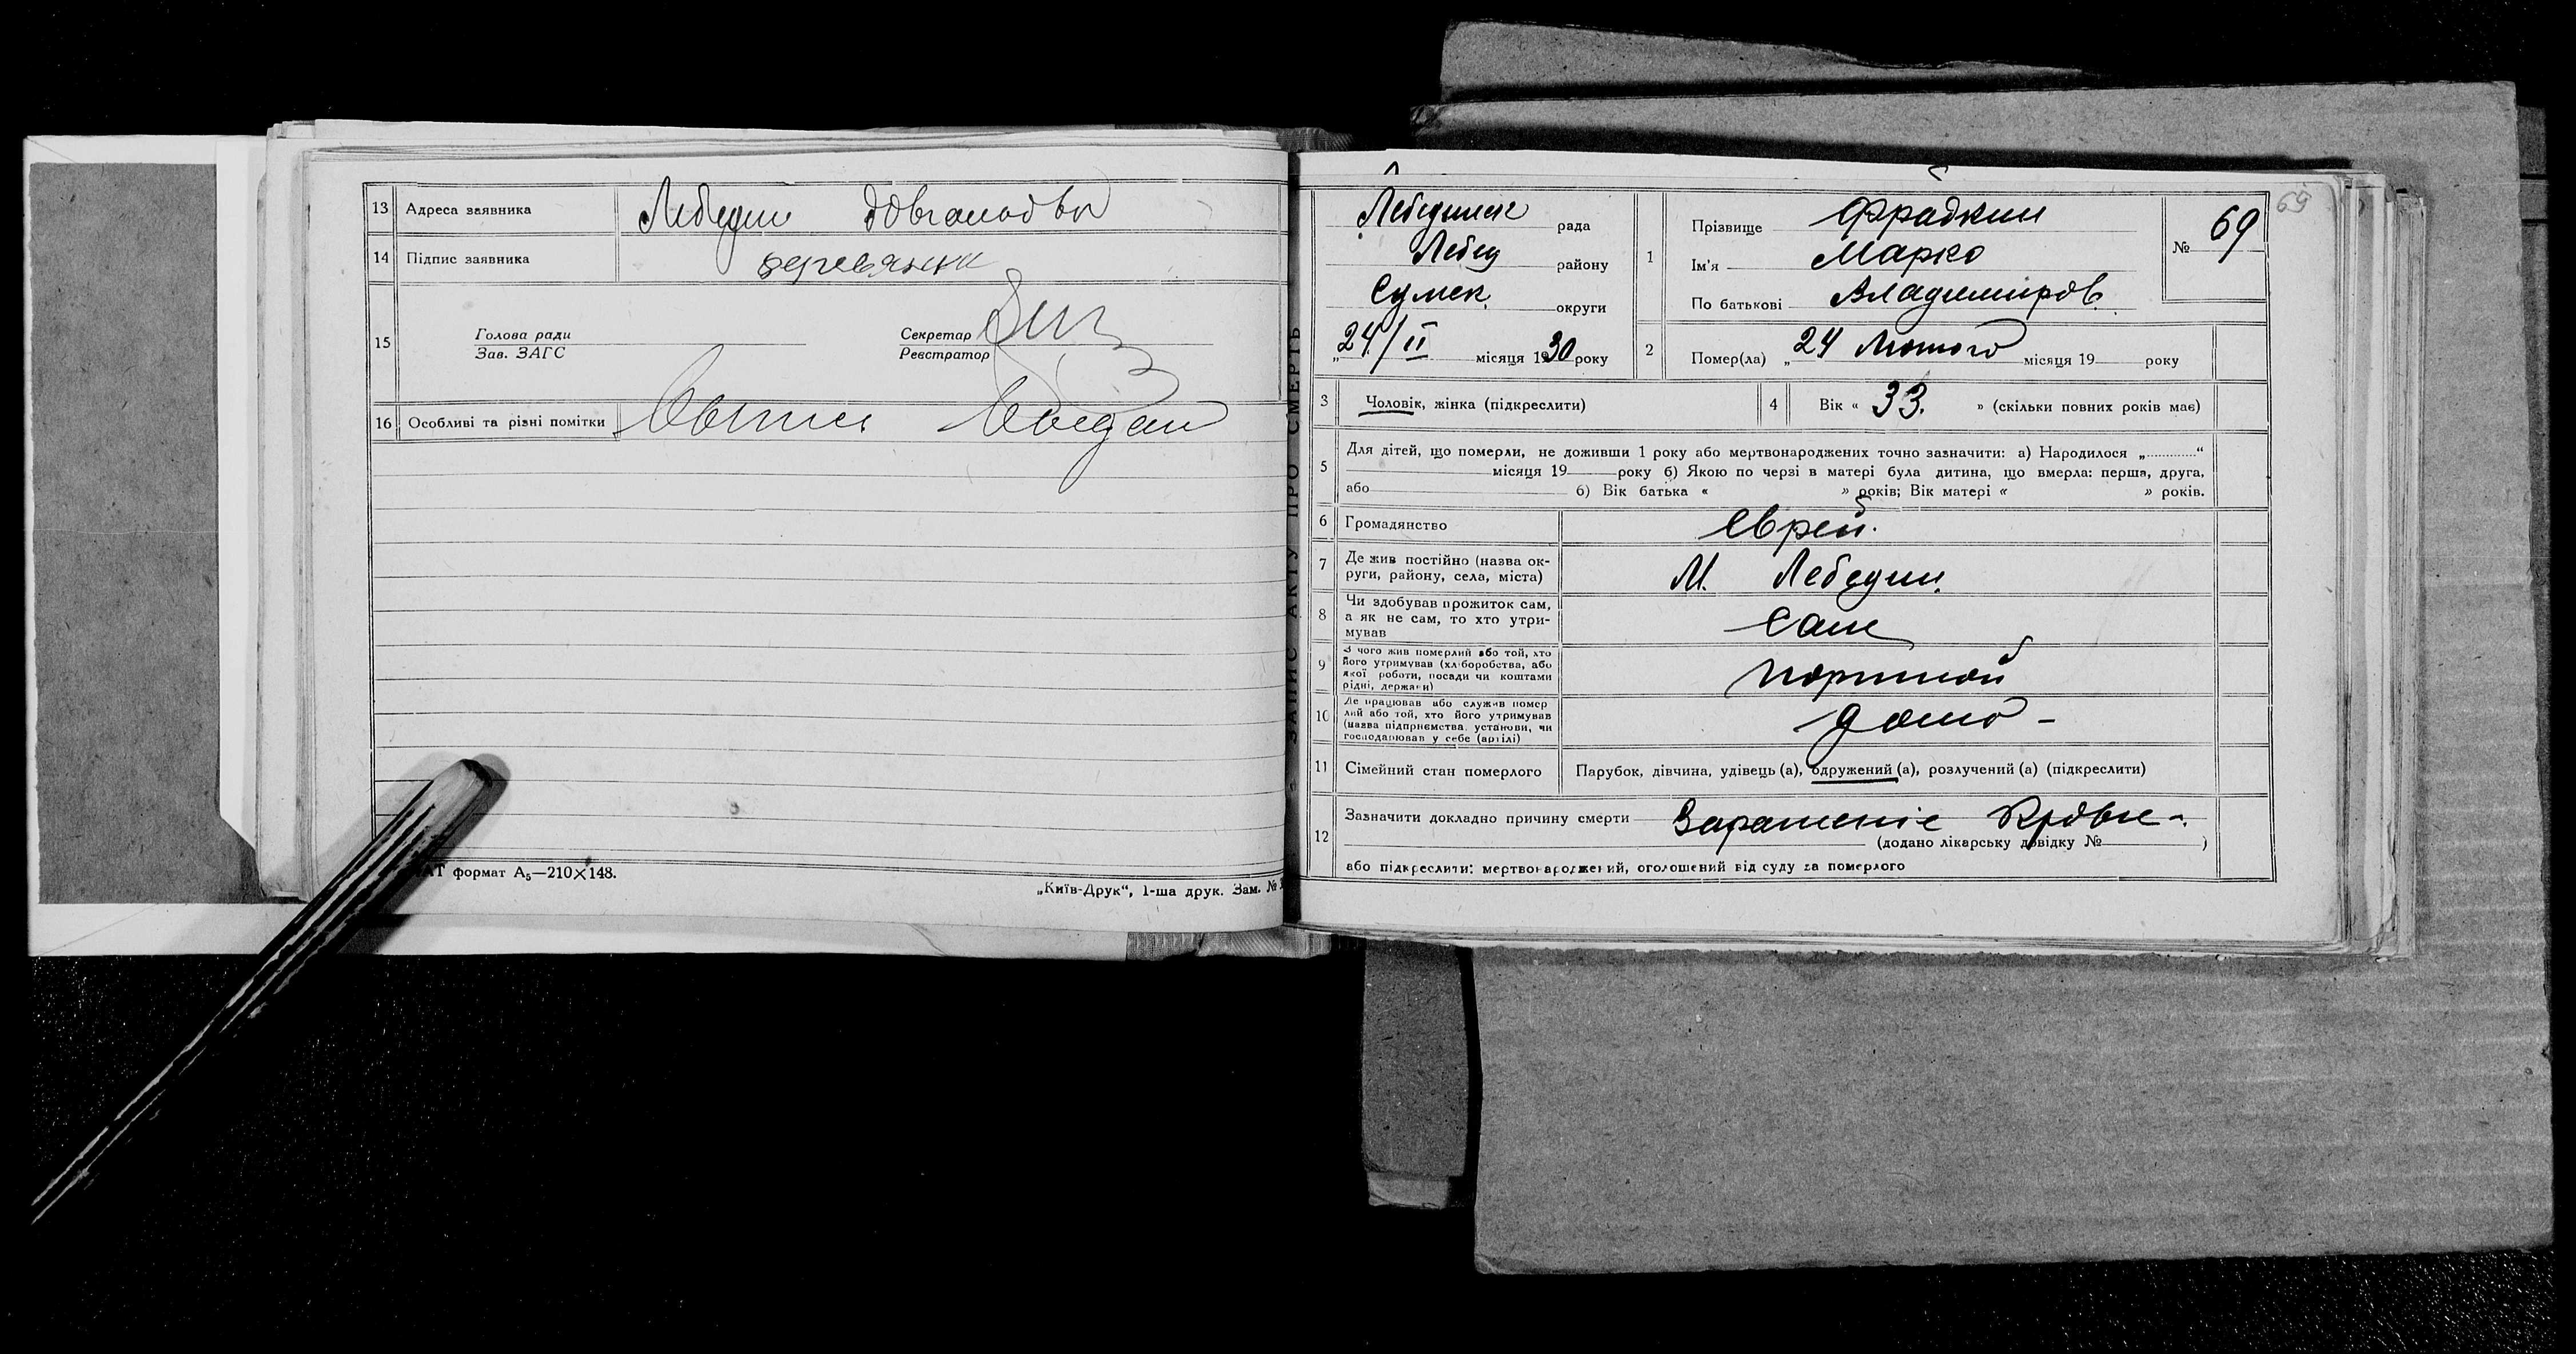 13 Адреса заявника Лебедин
14 Підпис заявника
15 Голова ради
Зав. ЗАГС
Секретар
Реєстратор
16 Особливі та різні помітки
АТ формат А₅—210×148.
„Київ-Друк“, 1-ша друк. Зам. №
ЗАПИС АКТУ ПРО СМЕРТЬ
69
Лебединск рада
Лебед району
Сумск. округи
„24/II місяця 1930 року
1 Прізвище Фрадкин
Ім'я Марко
По батькові Владимиров.
№ 69
2 Помер(ла) „24 Лютого місяця 19 року
3 Чоловік, жінка (підкреслити)
4 Вік « 33. » (скільки повних років має)
5 Для дітей, що померли, не доживши 1 року або мертвонароджених точно зазначити: а) Народилося „............“
місяця 19 року б) Якою по черзі в матері була дитина, що вмерла: перша, друга,
або б) Вік батька « » років; Вік матері « » років.
6 Громадянство Еврей.
7 Де жив постійно (назва ок-
руги, району, села, міста) М. Лебедин.
8 Чи здобував прожиток сам,
а як не сам, то хто утри-
мував Сам
9 З чого жив померлий або той, хто
його утримував (хліборобства, або
якої роботи, посади чи коштами
рідні, держави) портной
10 Де працював або служив помер
лий або той, хто його утримував
(назва підприємства, установи, чи
господарював у себе (артілі) дома -
11 Сімейний стан померлого Парубок, дівчина, удівець (а), одружений (а), розлучений (а) (підкреслити)
12 Зазначити докладно причину смерти Заражение Крови-
(додано лікарську довідку № )
або підкреслити: мертвонароджений, оголошений від суду за померлого